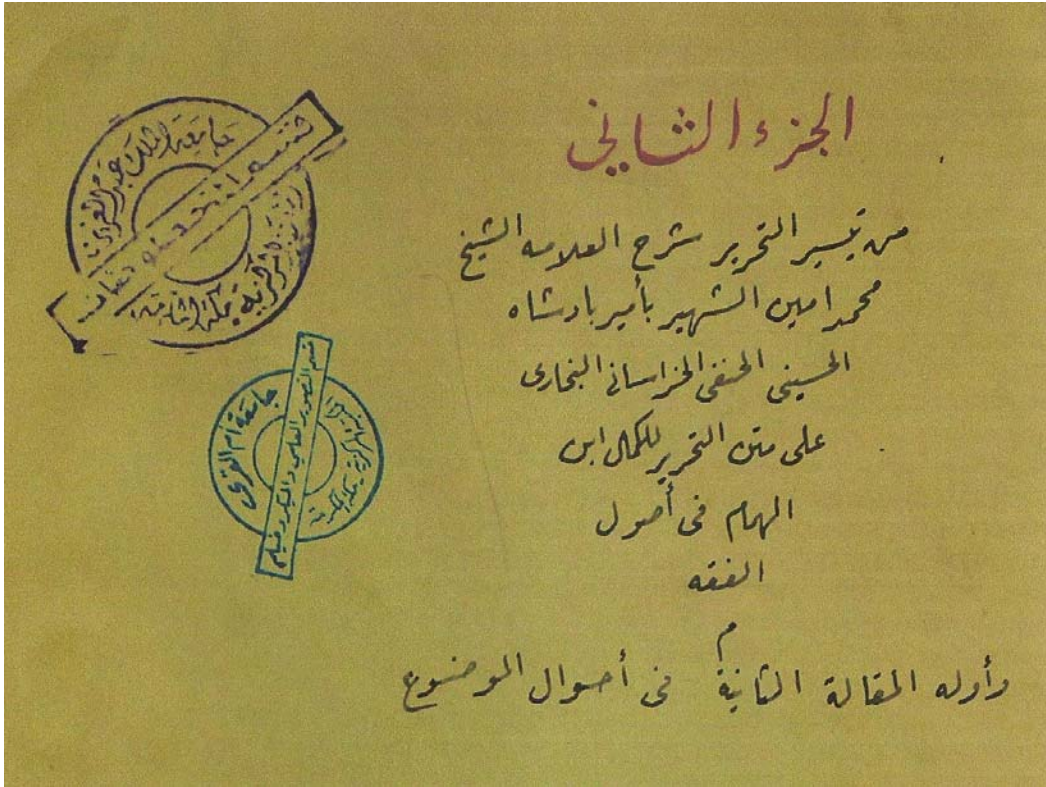 الجزء الثاني
من تيسير التحرير شرح العلامه الشيخ
محمد امين الشهير بأمير بادشاه
الحسينى الحنفى الخراسانى البخارى
على متن التحرير للكمال ابن
الهمام فى أصول
الفقه
م
وأوله المقالة الثانية فى أحوال الموضوع
جامعة الملك عبد العزيز
المركزية بمكة
جامعة أم القرى
قسم التصوير العلمي والميكروفيلم